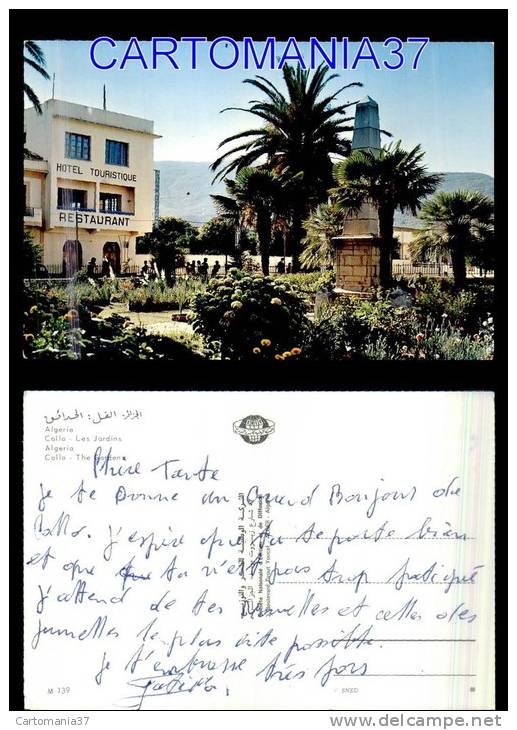 CARTOMANIA37
HOTEL TOURISTIQUE
RESTAURANT
الجزائر: القل: الحدائق
Algeria
Collo - Les Jardins
Algeria
Collo - The Gardens
Chère Tante
je te Donne un Grand Bonjour de
Collo. J'espère que tu te porte bien
et que tu n'est pas trop fatigué
j'attend de tes Nouvelles et celles des
jumelles le plus vite possible.
je t'embrasse très fort
M 139
SNED
Cartomania37
www.delcampe.net